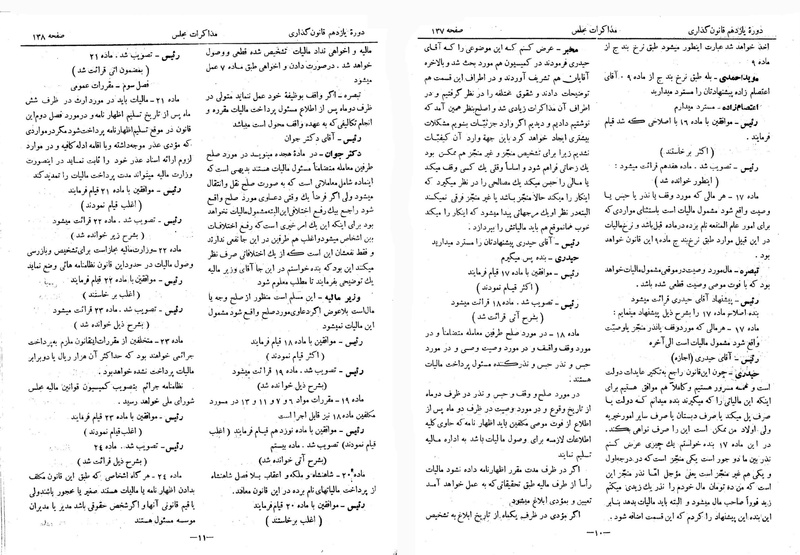 دورهٔ یازدهم قانون گذاری
مذاکرات مجلس
صفحه ۱۳۷
اخذ خواهد شد عبارت اینطور میشود طبق نرخ بند ج از
ماده ۹
مؤید احمدی - بله طبق نرخ بند ج از ماده ۹ . آقای
اعتصام زاده پیشنهادتان را مسترد میدارید
اعتصام زاده - مسترد میدارم
رئیس - موافقین با ماده ۱۶ با اصلاحی که شد قیام
فرمایند
( اکثر برخاستند )
رئیس - تصویب شد . ماده هفدهم قرائت میشود :
( اینطور خوانده شد )
ماده ۱۷ - هر مالی که مورد وقف یا نذر یا حبس یا
وصیت واقع شود مشمول مالیات است باستثنای مواردی که
برای امور عام المنفعه نام برده در ماده قبل باشد و نرخ مالیات
در این قبیل موارد طبق نرخ بند ج ماده ۹ این قانون خواهد بود
تبصره - مال مورد وصیت در موقعی مشمول مالیات خواهد
بود که با فوت موصی وصیت قطعی شده باشد .
رئیس - پیشنهاد آقای حیدری قرائت میشود
بنده اصلاح ماده ۱۷ را بشرح ذیل پیشنهاد مینمایم :
ماده ۱۷ - هر مالی که مورد وقف یا نذر یا وصیت
واقع شود مشمول مالیات است الی آخر
رئیس - آقای حیدری (اجازه)
حیدری - چون این قانون راجع بتکثیر عایدات دولت
است و همه مسرور هستیم و کاملاً هم موافق هستیم برای
اینکه این مالیاتی را که میگیرند بنده میدانم که دولت یا
صرف پل میکند یا صرف دبستان یا صرف سایر امور خیریه
ولی اولاد من ممکن است این را صرف نواهی کند.
در این ماده ۱۷ بنده خواستم یک چیزی عرض کنم
نذر بین ما دو جور است یکی منجز است که در جا عمل
و یکی هم غیر منجز است یعنی مؤجل آقا نذر منجز این
است که من ده تومان مال خودم را نذر یک زیدی میکنم
زید فوراً صاحب مال میشود و البته باید مالیات بدهد بنابر
این بنده این پیشنهاد را کردم که این قسمت اضافه شود .
مخبر - عرض کنم که این موضوعی را که آقای
حیدری فرمودند در کمیسیون هم مورد بحث شد و بالاخره
آقایان هم تشریف آوردند و در اطراف این قسمت هم
توضیحات دادند و شقوق مختلفه را در نظر گرفتیم و در
اطراف آن مذاکرات زیادی شد و اصلح نظر همین آمد که
نوشتیم دادیم و دیدیم اگر وارد جزئیات بشویم مشکلات
بیشتری ایجاد خواهد کرد باین جهة وارد آن کیفیات
نشدیم زیرا برای تشخیص منجز و غیر منجز هم ممکن بود
یک زحماتی فراهم شود و اساساً وقتی یک کسی وقف میکند
یا مالی را حبس میکند یک مصالحی را در نظر میگیرد که
اینکار را میکند حالا منجز باشد یا غیر منجز فرقی نمیکند
البته در نظر او یک مرجحاتی پیدا میشود که اینکار را میکند
خوب همانموقع هم باید مالیاتش را بپردازد .
رئیس - آقای حیدری پیشنهادتان را مسترد میدارید
حیدری - بنده پس میگیرم
رئیس - موافقین با ماده ۱۷ قیام فرمایند
( اکثر قیام نمودند )
رئیس - تصویب شد . ماده ۱۸ قرائت میشود
( بشرح آتی قرائت شد )
ماده ۱۸ - در مورد صلح طرفین معامله متضامناً و در
مورد وقف واقف و در مورد وصیت وصی و در مورد
حبس و نذر حبس و نذر کننده مسئول پرداخت مالیات
هستند
در مورد صلح و وقف و حبس و نذر در ظرف دو ماه
از تاریخ وقوع و در مورد وصیت در ظرف دو ماه پس از
اطلاع از فوت موصی مکلفین باید اظهار نامه که حاوی کلیه
اطلاعات لازمه برای وصول مالیات باشد به اداره مالیه
تسلیم نمایند
اگر در ظرف مدت مقرر اظهارنامه داده نشود مالیات
رأساً از طرف مالیه طبق تحقیقاتی که به عمل خواهد آمد
تعیین و بمؤدی ابلاغ میشود .
اگر مؤدی در ظرف یکماه از تاریخ ابلاغ به تشخیص
—۱۰—
دورهٔ یازدهم قانون گذاری
مذاکرات مجلس
صفحه ۱۳۸
مالیه و اخواهی نداد مالیات تشخیص شده قطعی و وصول
خواهد شد . در صورت دادن و اخواهی طبق ماده ۷ عمل
میشود
تبصره - اگر واقف بوظیفه خود عمل ننماید متولی در
ظرف دو ماه پس از اطلاع مسئول پرداخت مالیات مقرره و
انجام تکالیفی که به عهده واقف است میباشد
رئیس - آقای دکتر جوان
دکتر جوان - در مادهٔ هجده مینویسد در مورد صلح
طرفین معامله متضامناً مسئول مالیات هستند بدیهی است که
اینماده شامل معاملاتی است که به صورت صلح نقل و انتقال
میشود ولی اگر فرضاً یک وقتی دعاوی مورد صلح واقع
شود راجع بیک رفع اختلافی این البته مشمول مالیات نخواهد
بود برای اینکه این یک امر خیری است که رفع اختلافات
بین اشخاص میشود و اغلب هم طرفین در این جا نفعی ندارند
و فقط نفعشان این است که از یک اختلافاتی صرف نظر
میکنند این بود که بنده خواستم در این جا آقای وزیر مالیه
یک توضیحی بفرمایند تا مطلب معلوم شود
وزیر مالیه - این مسلم است منظور از صلح وجه یا
مال است بلاعوض اگر دعاوی مورد صلح واقع شود مشمول
این مالیات نمیشود
رئیس - موافقین با ماده ۱۸ قیام فرمایند
( اکثر قیام نمودند )
رئیس - تصویب شد . ماده ۱۹ قرائت میشود
( بشرح ذیل خوانده شد )
ماده ۱۹ - مقررات مواد ۶ و ۷ و ۱۱ و ۱۳ در مورد
مکلفین ماده ۱۸ نیز قابل اجرا است
رئیس - موافقین با ماده نوزدهم قیام فرمایند ( اغلب
قیام نمودند ) تصویب شد . ماده بیستم
( بشرح آتی خوانده شد )
ماده ۲۰ - شاهنشاه و ملکه و اعقاب بلافصل شاهنشاه
از پرداخت مالیاتهای نام برده در این قانون معافند .
رئیس - موافقین با ماده ۲۰ قیام فرمایند
( اغلب برخاستند )
رئیس - تصویب شد . ماده ۲۱
( بمضمون آتی قرائت شد )
فصل سوم - مقررات عمومی
ماده ۲۱ - مالیات باید در مورد ارث در ظرف شش
ماه پس از تاریخ تسلیم اظهار نامه و در مورد فصل دوم این
قانون در موقع تسلیم اظهار نامه پرداخت شود مگر در مواردی
که مؤدی عذر موجه داشته و با اقامه ادله کافیه و در موارد
لزوم ارائه اسناد عذر خود را ثابت نماید در اینصورت
وزارت مالیه میتواند مدت پرداخت مالیات را تمدید کند
رئیس - موافقین با ماده ۲۱ قیام فرمایند
( اغلب قیام نمودند )
رئیس - تصویب شد . ماده ۲۲ قرائت میشود
( بشرح زیر خوانده شد )
ماده ۲۲ - وزارت مالیه مجاز است برای تشخیص و بازرسی
وصول مالیات در حدود این قانون نظامنامه هائی وضع نماید
رئیس - موافقین با ماده ۲۲ قیام فرمایند
( اغلب برخاستند )
رئیس - تصویب شد . ماده ۲۳ قرائت میشود
( بشرح ذیل خوانده شد )
ماده ۲۳ - متخلفین از مقررات این قانون ملزم به پرداخت
جرائمی خواهند بود که حداکثر آن هزار ریال یا دو برابر
مالیات پرداخت نشده خواهد بود .
نظامنامه جرائم بتصویب کمیسیون قوانین مالیه مجلس
شورای ملی خواهد رسید .
رئیس - موافقین با ماده ۲۳ قیام فرمایند
( اغلب قیام نمودند )
رئیس - تصویب شد . ماده ۲۴
( بشرح ذیل قرائت شد )
ماده ۲۴ - هر گاه اشخاصی که طبق این قانون مکلف
بدادن اظهار نامه یا مالیات هستند صغیر یا محجور باشند ولی
یا قیم قانونی آنها و اگر شخص حقوقی باشد مدیر یا مدیران
موسسه مسئول هستند
—۱۱—